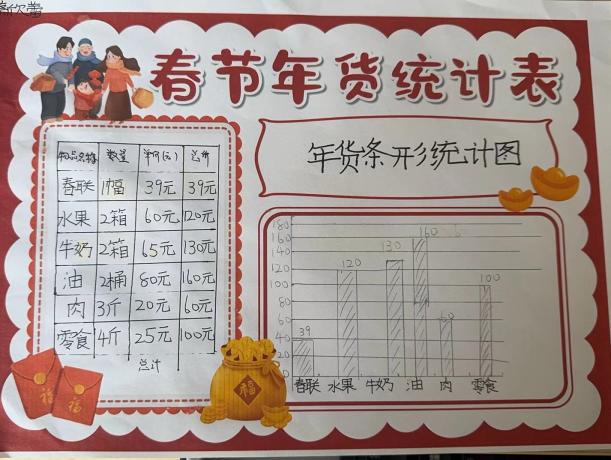 欣蕾
春节年货统计表
年货条形统计图
物品名称 数量 单价(元) 总价
春联 1幅 39元 39元
水果 2箱 60元 120元
牛奶 2箱 65元 130元
油 2桶 80元 160元
肉 3斤 20元 60元
零食 4斤 25元 100元
总计
180
160
140
120
100
80
60
40
20
0
39 120 130 160 60 100
春联 水果 牛奶 油 肉 零食
福 福
福